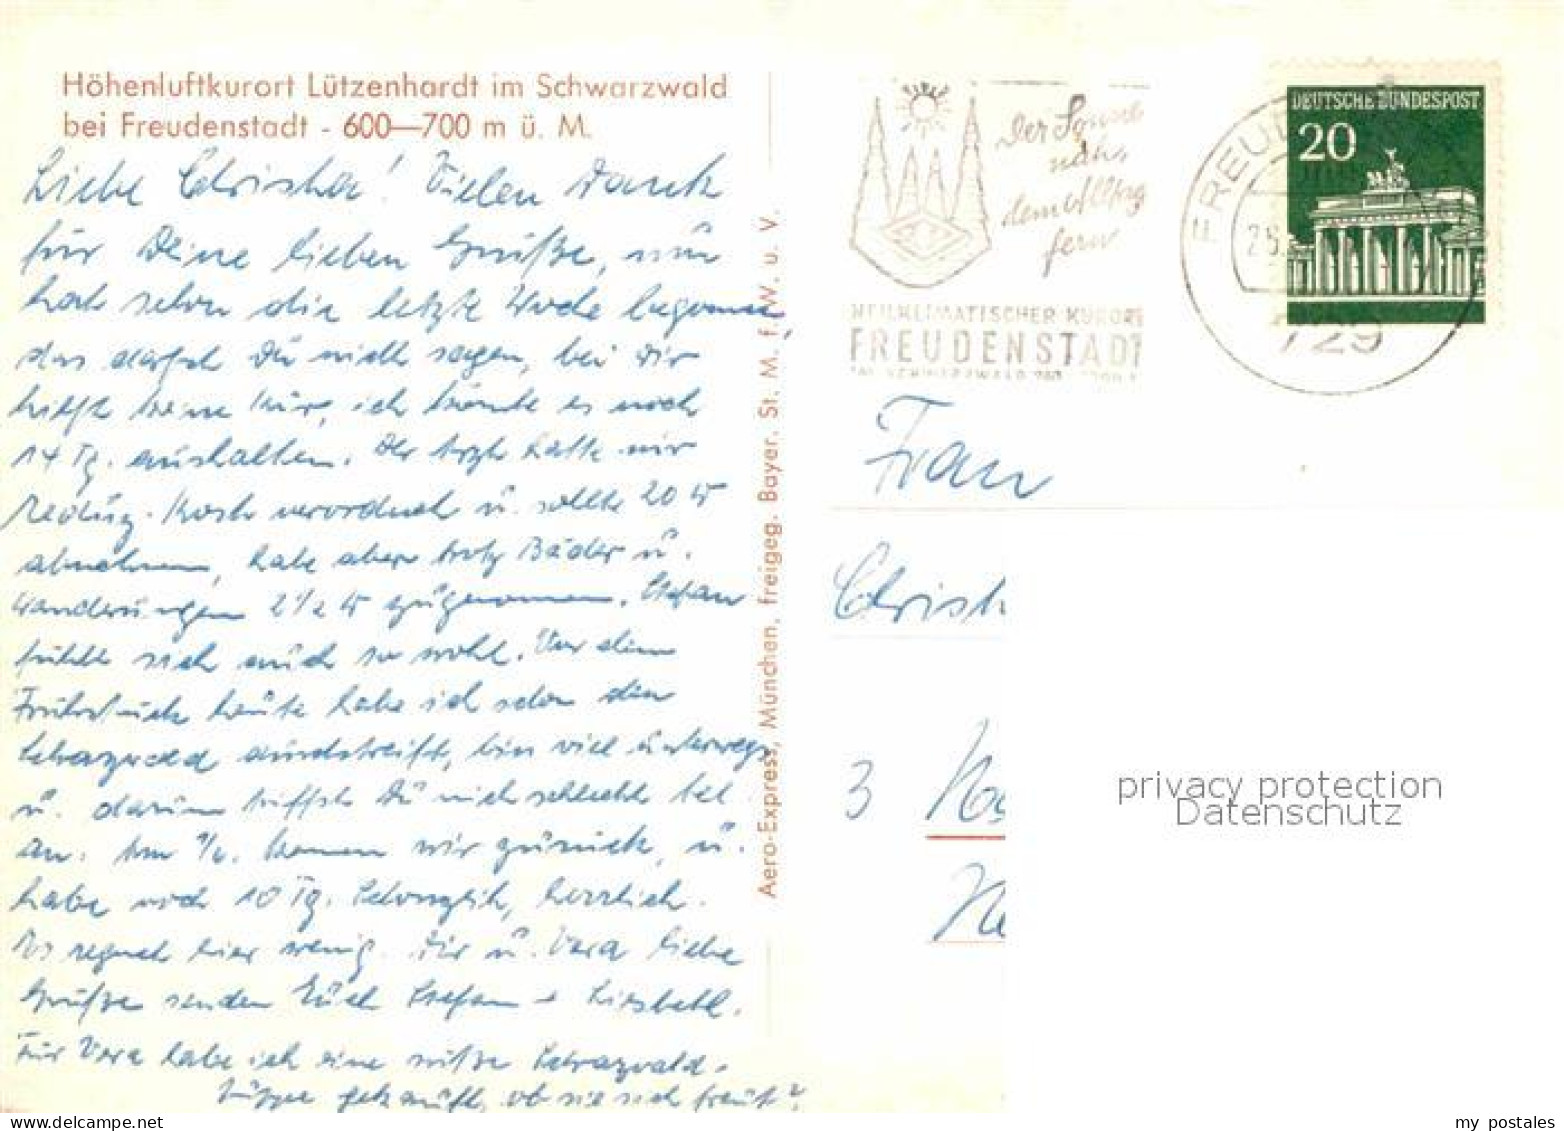 Höhenluftkurort Lützenhardt im Schwarzwald
bei Freudenstadt - 600—700 m ü. M.
Liebe Christa! Vielen Dank
für Deine lieben Grüße, nun
hat schon die letzte Woche begonnen,
das darfst Du nicht sagen, bei Dir
hilft keine Kur, ich könnte es noch
14 Tg. aushalten. Der Arzt hatte mir
Reduz. Kost verordnet u. sollte 20 ℔
abnehmen, habe aber trotz Bäder u.
Wanderungen 2 1/2 ℔ zugenommen. Stefan
fühlt sich auch so wohl. Vor dem
Frühstück heute habe ich schon den
Schwarzwald durchstreift, bin viel unterwegs
u. darum triffst Du mich schlecht tel.
an. Am kommen wir zurück, u.
habe noch 10 Tg. herrlich.
Es regnet hier wenig. Dir u. Vera liebe
Grüße senden Euch Stefan + Liesbeth.
Für Vera habe ich eine süße Schwarzwald-
Puppe gekauft, ob sie sich freut?
Aero-Express, München, freigeg. Bayer. St. M. f. W. u. V.
Der Sonne
nah,
dem Alltag
fern
HEILKLIMATISCHER KURORT
FREUDENSTADT
IM SCHWARZWALD
FREUD
729
DEUTSCHE BUNDESPOST
20
Frau
Christ
3
privacy protection
Datenschutz
my postales